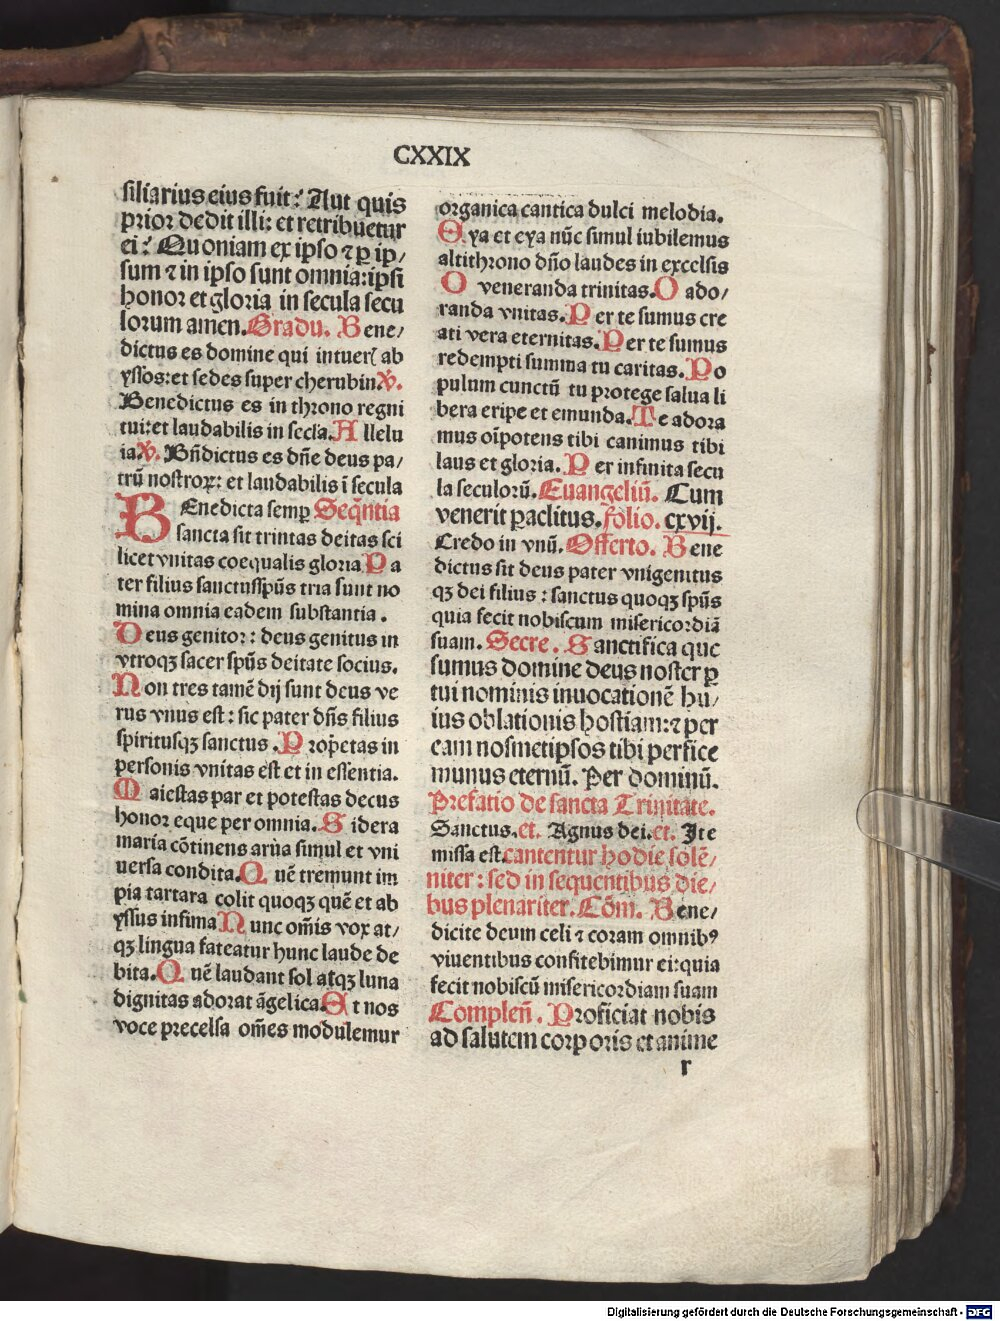 CXXIX
siliarius eius fuit: Aut quis
prior dedit illi: et retribuetur
ei: Quoniam ex ipso ⁊ ꝑ ip/
sum ⁊ in ipso sunt omnia:ipsi
honor et gloria in secula secu
lorum amen. Gradu. Bene/
dictus es domine qui intuerꝭ ab
yssos:et sedes super cherubin ℣.
Benedictus es in throno regni
tui:et laudabilis in secła. Allelu
ia ℣. Bñdictus es dñe deus pa/
trū nostroꝝ: et laudabilis ī secula
BEnedicta semꝑ Seq̄ntia
sancta sit trinitas deitas sci
licet vnitas coequalis gloria Pa
ter filius sanctusspūs tria sunt no
mina omnia eadem substantia.
Deus genitor: deus genitus in
vtroqꝫ sacer spūs deitate socius.
Non tres tamē dij sunt deus ve
rus vnus est: sic pater dñs filius
spiritusqꝫ sanctus. Propꝛetas in
personis vnitas est et in essentia.
Maiestas par et potestas decus
honor eque per omnia. Sidera
maria cōtinens arua simul et vni
uersa condita. Quē tremunt im
pia tartara colit quoqꝫ quē et ab
yssus infima Nunc om̄is vox at/
qꝫ lingua fateatur hunc laude de
bita. Quē laudant sol atqꝫ luna
dignitas adorat āgelica. Et nos
voce precelsa om̄es modulemur
organica cantica dulci melodia.
Eya et eya nūc simul iubilemus
altithrono dño laudes in excelsis
O veneranda trinitas. O ado/
randa vnitas. Per te sumus cre
ati vera eternitas. Per te sumus
redempti summa tu caritas. Po
pulum cunctū tu protege salua li
bera eripe et emunda. Te adora
mus oīpotens tibi canimus tibi
laus et gloria. Per infinita secu
la seculorū. Euangeliū. Cum
venerit ꝑaclitus. folio. cxvij.
Credo in vnū. Offerto. Bene
dictus sit deus pater vnigenitus
qꝫ dei filius: sanctus quoqꝫ spūs
quia fecit nobiscum misericordiā
suam. Secre. Sanctifica que
sumus domine deus noster ꝑ
tui nominis inuocationē hu/
ius oblationis hostiam:⁊ per
eam nosmetipsos tibi perfice
munus eternū. Per dominū.
Prefatio de sancta Trinitate.
Sanctus.et. Agnus dei.et. Ite
missa est. cantentur hodie solē/
niter: sed in sequentibus die/
bus plenariter. Cōm. Bene/
dicite deum celi ⁊ coram omnibꝰ
viuentibus confitebimur ei:quia
fecit nobiscū misericordiam suam
Compleñ. Proficiat nobis
ad salutem corporis et anime
r
Digitalisierung gefördert durch die Deutsche Forschungsgemeinschaft - DFG